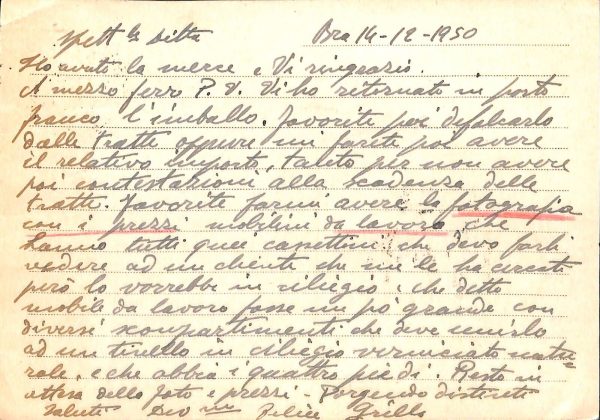 Spett le Ditta Bra 14-12-1950
Ho avuto la merce e Vi ringrazio.
A mezzo ferr P. V. Vi ho retornato in porto
franco l'imballo. Favorite poi difalcarlo
dalle tratte oppure mi farete poi avere
il relativo importo, tanto per non avere
poi contestazioni alla scadenza delle
tratte. Favorite farmi avere la fotografia
con i prezzi mobilini da lavoro che
hanno tutti quei cassettini, che devo farli
vedere ad un cliente che me le ha cercati
però lo vorrebbe in ciliegio e che detto
mobile da lavoro fosse un pò grande con
diversi scompartimenti che deve unirlo
ad un tinello in ciliegio verniciato natu-
rale, e che abbia i quattro piedi. Resto in
attesa della foto e prezzi - Porgendo distinti
saluti Dev mo Felice Grillo